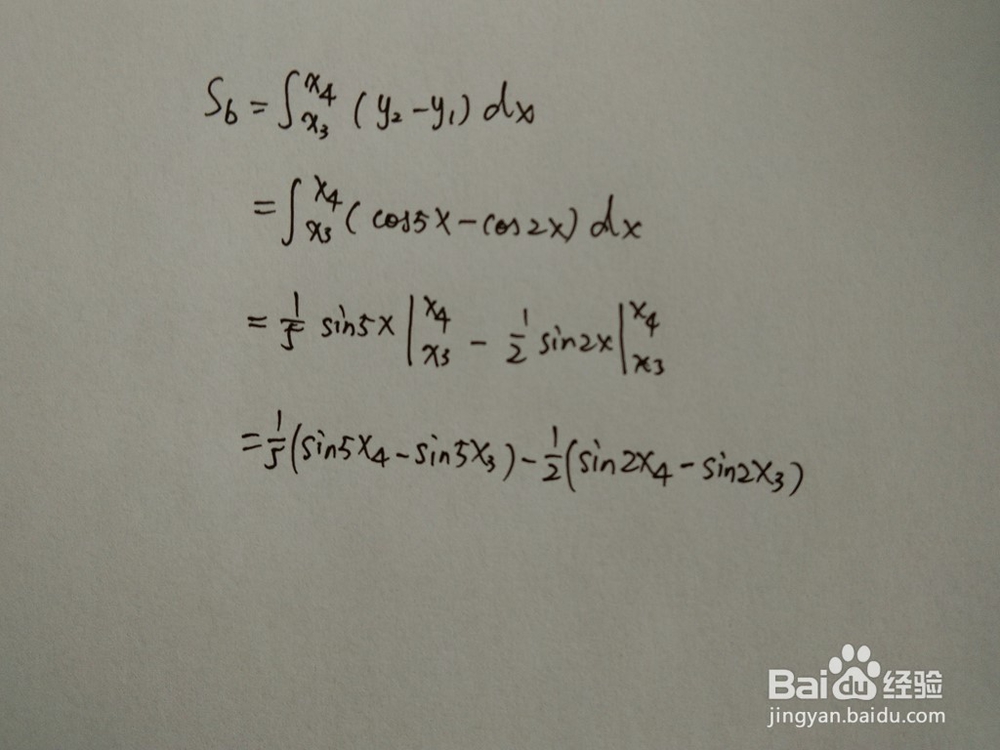 S₆ = ∫_{x₃}^{x₄} (y₂ - y₁) dx
= ∫_{x₃}^{x₄} (cos5x - cos2x) dx
= 1/5 sin5x |_{x₃}^{x₄} - 1/2 sin2x |_{x₃}^{x₄}
= 1/5 (sin5x₄ - sin5x₃) - 1/2 (sin2x₄ - sin2x₃)
Baidu经验
jingyan.baidu.com